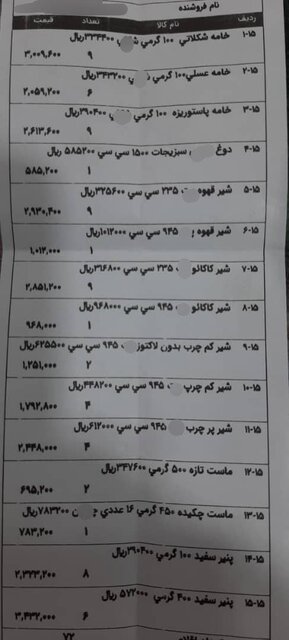 نام فروشنده
ردیف نام کالا تعداد قیمت
۱-۱۵ خامه شکلاتي ۱۰۰ گرمي ۳۳۴۴۰۰ریال
۹ ۳,۰۰۹,۶۰۰
۲-۱۵ خامه عسلي ۱۰۰ گرمي ۳۴۳۲۰۰ریال
۶ ۲,۰۵۹,۲۰۰
۳-۱۵ خامه پاستوریزه ۱۰۰ گرمي ۲۹۰۴۰۰ریال
۹ ۲,۶۱۳,۶۰۰
۴-۱۵ دوغ سبزیجات ۱۵۰۰ سي سي ۵۸۵۲۰۰ ریال
۱ ۵۸۵,۲۰۰
۵-۱۵ شیر قهوه ۲۳۵ سي سي ۳۲۵۶۰۰ریال
۹ ۲,۹۳۰,۴۰۰
۶-۱۵ شیر قهوه ۹۴۵ سي سي ۱۰۱۲۰۰۰ریال
۱ ۱,۰۱۲,۰۰۰
۷-۱۵ شیر کاکائو ۲۳۵ سي سي ۳۱۶۸۰۰ریال
۹ ۲,۸۵۱,۲۰۰
۸-۱۵ شیر کاکائو ۹۴۵ سي سي ۹۶۸۰۰۰ریال
۱ ۹۶۸,۰۰۰
۹-۱۵ شیر کم چرب بدون لاکتوز ۹۴۵ سي سي ۶۲۵۵۰۰ریال
۲ ۱,۲۵۱,۰۰۰
۱۰-۱۵ شیر کم چرب ۹۴۵ سي سي ۴۴۸۲۰۰ریال
۴ ۱,۷۹۲,۸۰۰
۱۱-۱۵ شیر پر چرب ۹۴۵ سي سي ۶۱۲۰۰۰ریال
۴ ۲,۴۴۸,۰۰۰
۱۲-۱۵ ماست تازه ۵۰۰ گرمي ۳۴۷۶۰۰ریال
۲ ۶۹۵,۲۰۰
۱۳-۱۵ ماست چکیده ۴۵۰ گرمي ۱۶ عددي ۷۸۳۲۰۰ریال
۱ ۷۸۳,۲۰۰
۱۴-۱۵ پنیر سفید ۱۰۰ گرمي ۲۹۰۴۰۰ریال
۸ ۲,۳۲۳,۲۰۰
۱۵-۱۵ پنیر سفید ۴۰۰ گرمي ۵۷۲۰۰۰ ریال
۶ ۳,۴۳۲,۰۰۰
۷۲